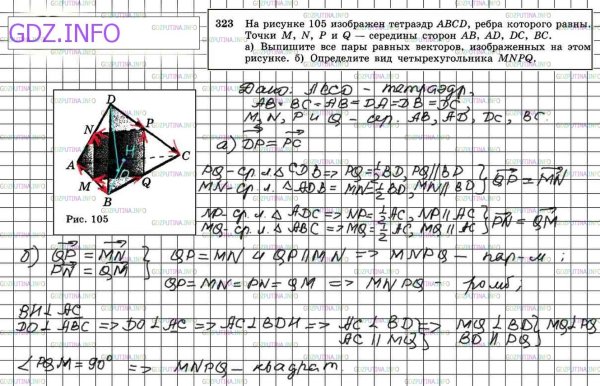 GDZ.INFO
323 На рисунке 105 изображен тетраэдр ABCD, ребра которого равны.
Точки M, N, P и Q — середины сторон AB, AD, DC, BC.
а) Выпишите все пары равных векторов, изображенных на этом
рисунке. б) Определите вид четырехугольника MNPQ.
Дано: ABCD - тетраэдр,
AB=BC=AB=DA=DB=DC,
M, N, P и Q - сер. AB, AD, DC, BC.
а) DP = PC
PQ-ср. л. △ CDB => PQ = 1/2 BD, PQ || BD } QP = MN
MN-ср. л. △ ADB = MN = 1/2 BD, MN || BD
NP-ср. л. △ ADC => NP = 1/2 AC, NP || AC } PN = QM
MQ-ср. л. △ ABC => MQ = 1/2 AC, MQ || AC
D
N
P
A
H
C
M
O
Q
B
Рис. 105
б) QP = MN } QP = MN и QP || MN => MNPQ - пар-м;
PN = QM } QP = MN = PN = QM => MNPQ - ромб;
BH ⊥ AC
DO ⊥ ABC => DO ⊥ AC => AC ⊥ BDH => AC ⊥ BD => MQ ⊥ BD } MQ ⊥ PQ
AC || MQ } BD || PQ
∠PQM = 90° => MNPQ - квадрат.